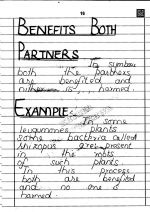 16
BENEFITS BOTH
PARTNERS
In symbio
both the partners
are benefited and
is harmed.
EXAMPLE
In some
leugumnes plants
some bacteria called
rhizopus are present
in the roots
of such plants.
In this process
both are benefited
and no one is
harmed.